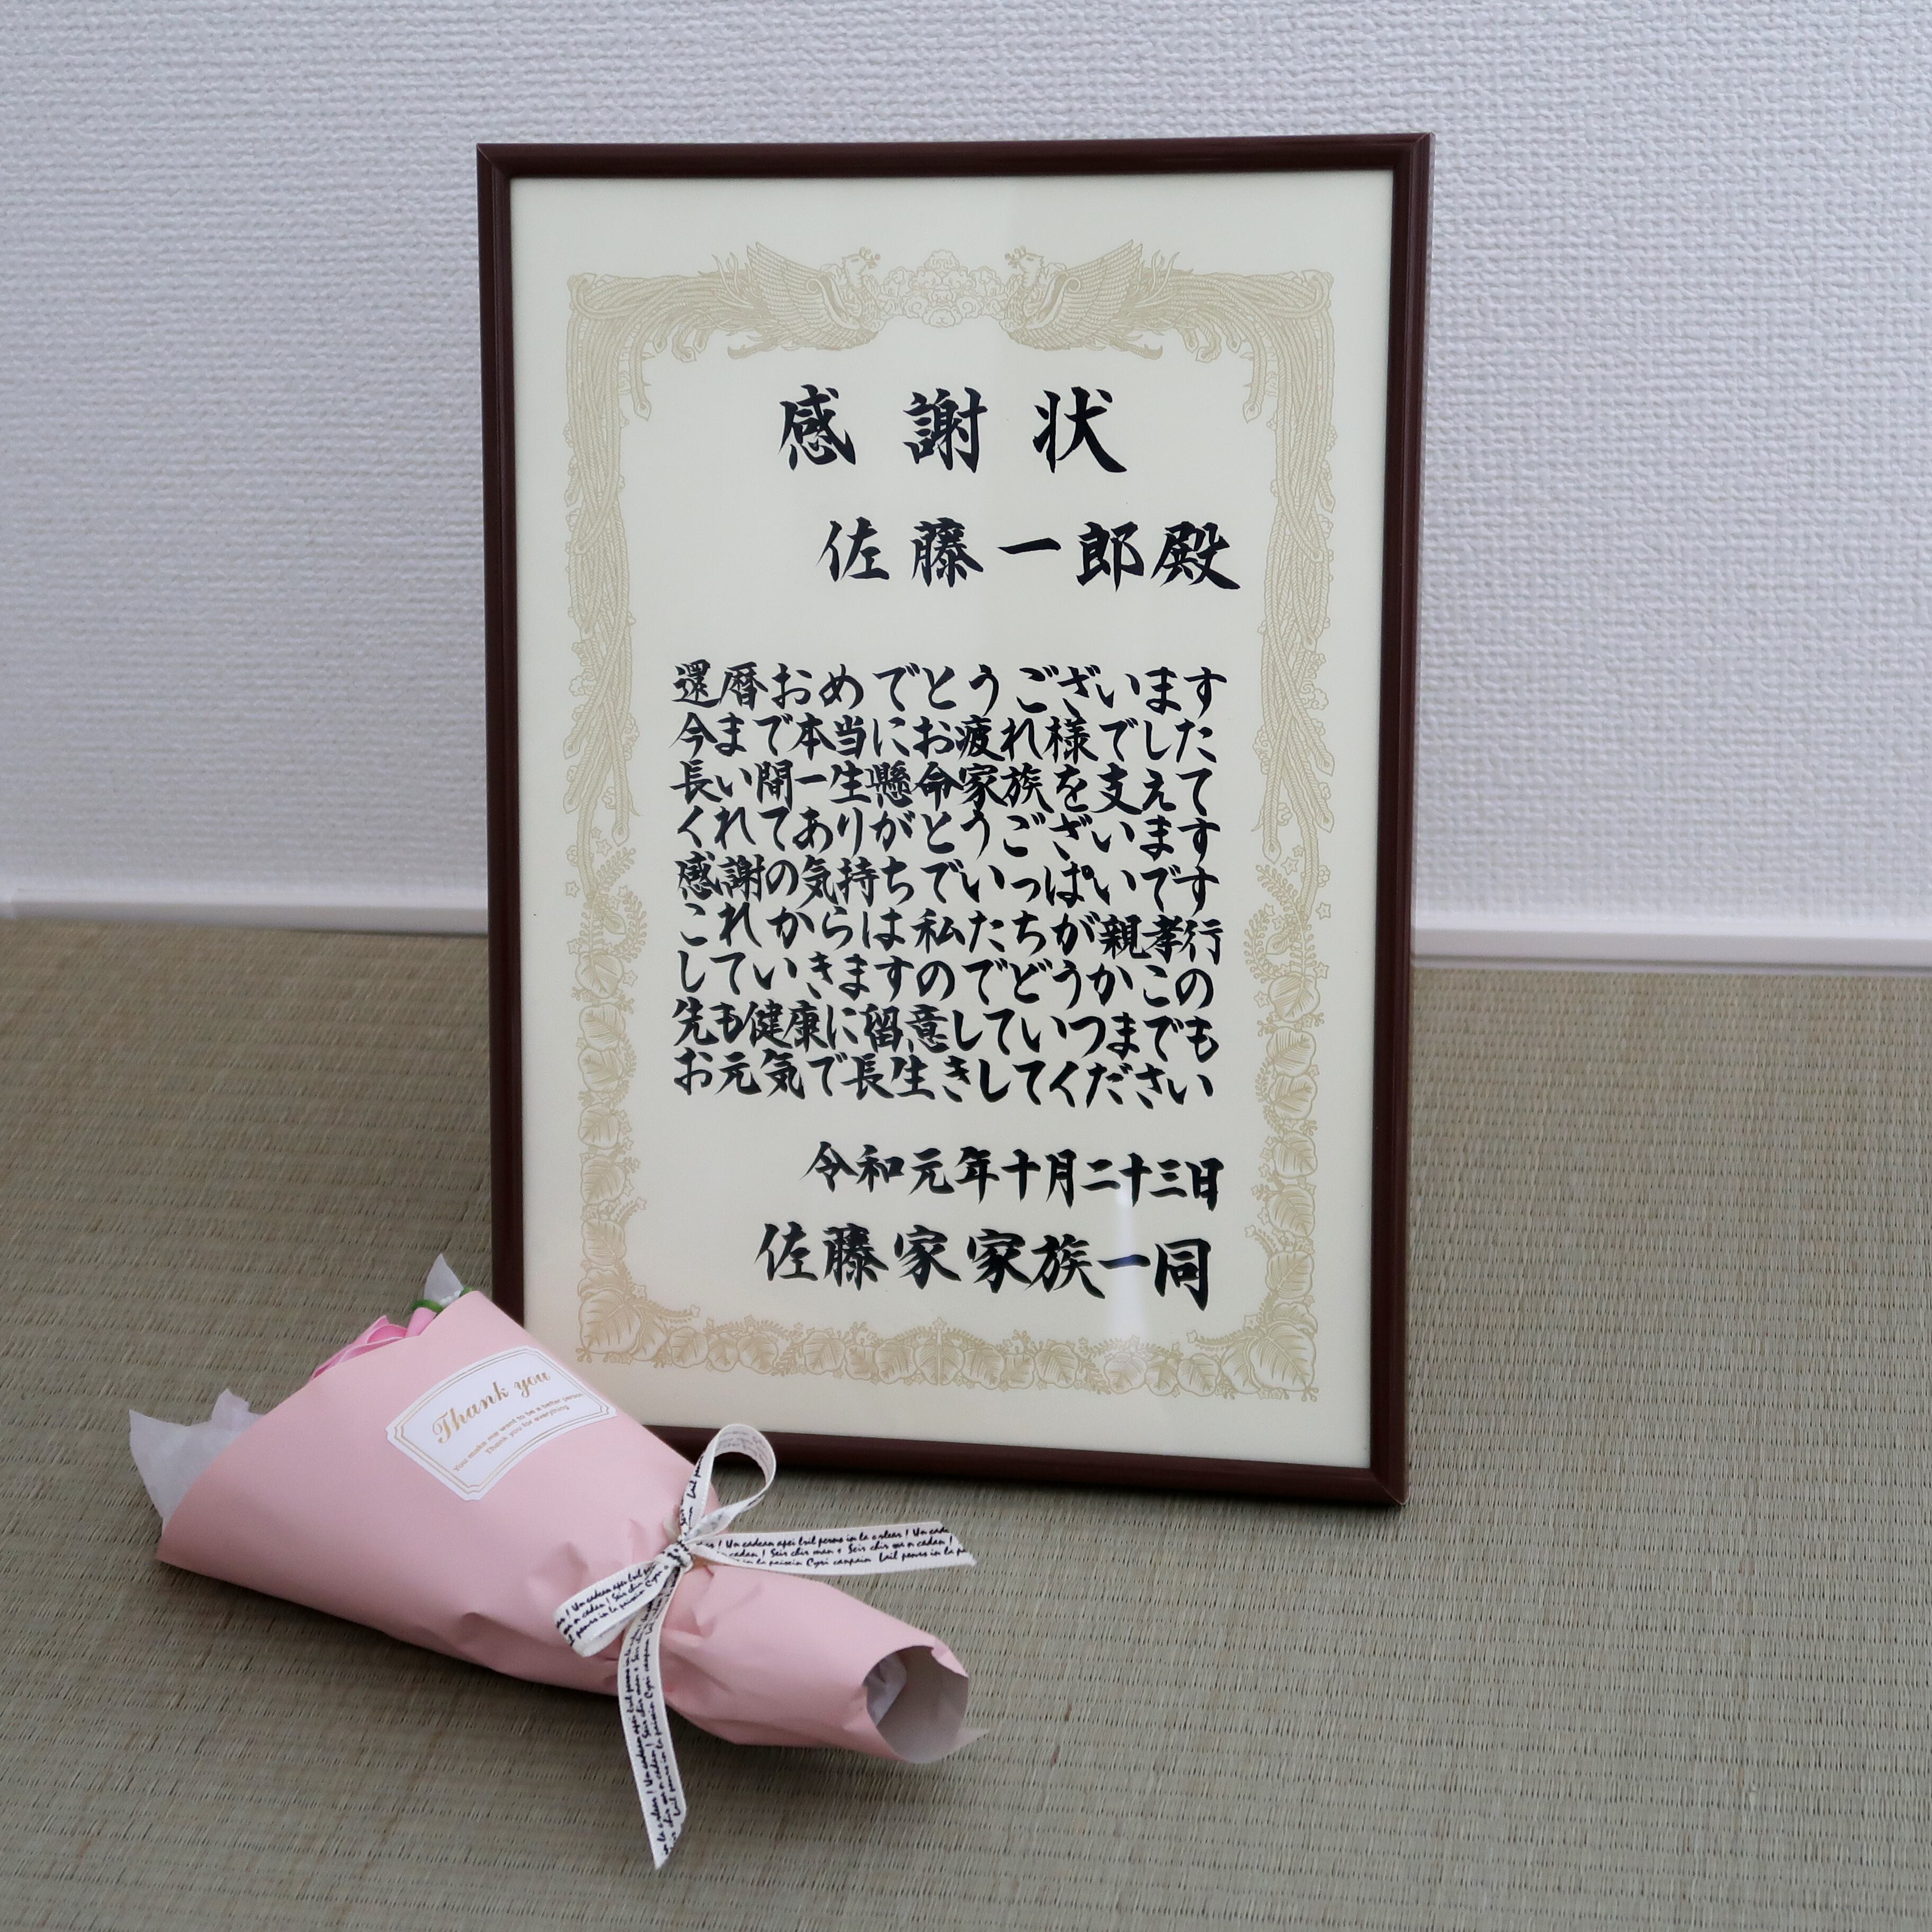 感謝状
佐藤一郎殿
還暦おめでとうございます
今まで本当にお疲れ様でした
長い間一生懸命家族を支えて
くれてありがとうございます
感謝の気持ちでいっぱいです
これからは私たちが親孝行
していきますのでどうかこの
先も健康に留意していつまでも
お元気で長生きしてください
令和元年十月二十三日
佐藤家家族一同
Thank you
You make me want to be a better person
Thank you for everything